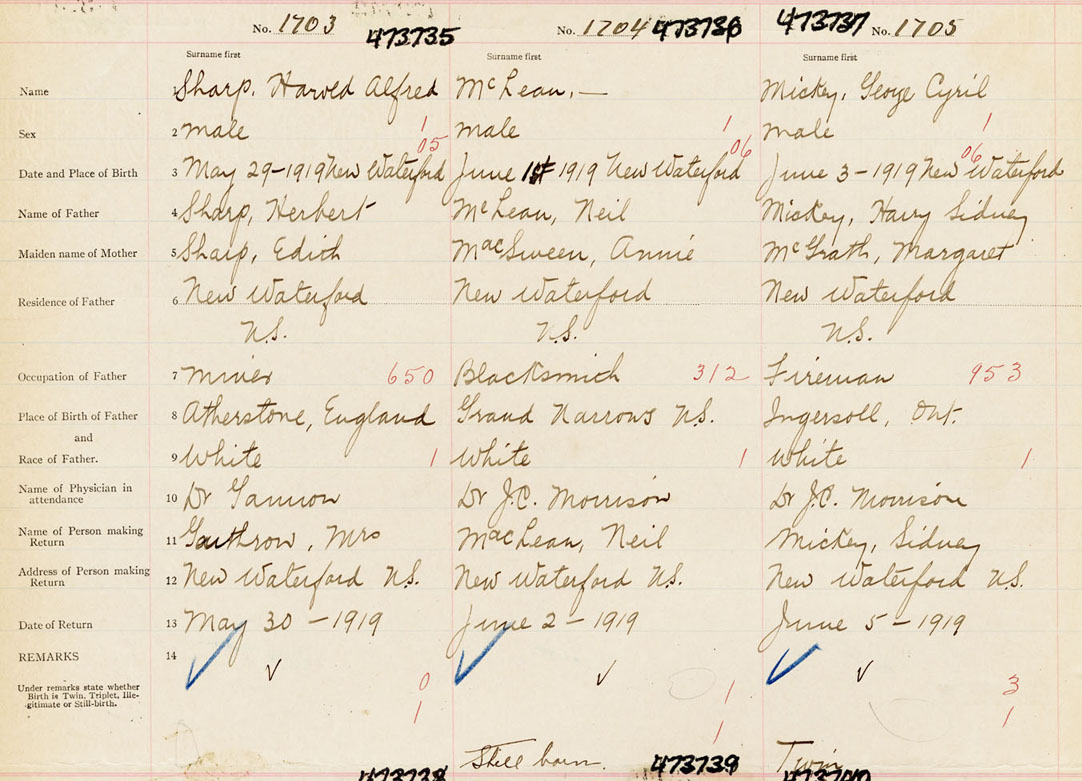 No. 1703 473735 No. 1704 473736 473737 No. 1705
Surname first Surname first Surname first
Name 1 Sharp, Harold Alfred McLean, — Mickey, George Cyril
Sex 2 male 1 male 1 male 1
05 06 06
Date and Place of Birth 3 May 29-1919 New Waterford June 1st 1919 New Waterford June 3-1919 New Waterford
Name of Father 4 Sharp, Herbert McLean, Neil Mickey, Harry Sidney
Maiden name of Mother 5 Sharp, Edith MacSween, Annie McGrath, Margaret
Residence of Father 6 New Waterford New Waterford New Waterford
N.S. N.S. N.S.
Occupation of Father 7 Miner 650 Blacksmith 312 Fireman 953
Place of Birth of Father 8 Atherstone, England Grand Narrows N.S. Ingersoll, Ont.
and
Race of Father. 9 White 1 White 1 White 1
Name of Physician in
attendance 10 Dr Gannon Dr J.C. Morrison Dr J.C. Morrison
Name of Person making
Return 11 Gauthrow, Mrs MacLean, Neil Mickey, Sidney
Address of Person making
Return 12 New Waterford N.S. New Waterford N.S. New Waterford N.S.
Date of Return 13 May 30-1919 June 2-1919 June 5-1919
REMARKS 14
Under remarks state whether
Birth is Twin, Triplet, Ille-
gitimate or Still-birth.
0 1 3
1 1 1
Still born. 473739 Twin